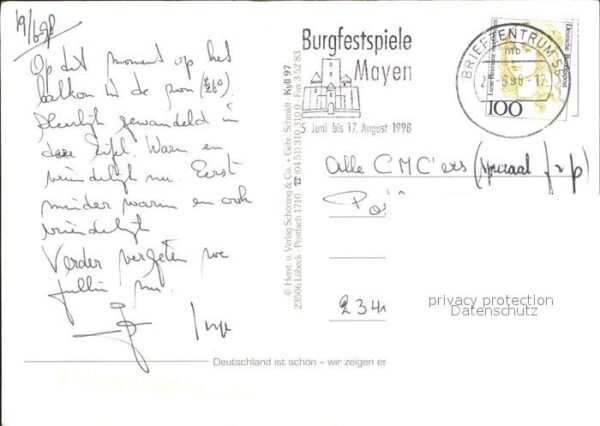 19/6 98
Op dit moment op het
balkon in de zon (26°)
Heerlijk gewandeld in
deze Eifel. Warm en
nu. Eerst
minder warm en ook
Verder vergeten we
jullie nu.
Inge
Burgfestspiele
Mayen
5. Juni bis 17. August 1998
BRIEFZENTRUM 56
mb
98-17
Deutsche Bundespost
100
© Herst. u. Verlag Schöning & Co. + Gebr. Schmidt Kyll 97
23506 Lübeck · Postfach 1710 ☎ (04 51) 310 310 0 · Fax 3 52 83
Alle CMC'ers (speciaal
234
privacy protection
Datenschutz
Deutschland ist schön – wir zeigen es